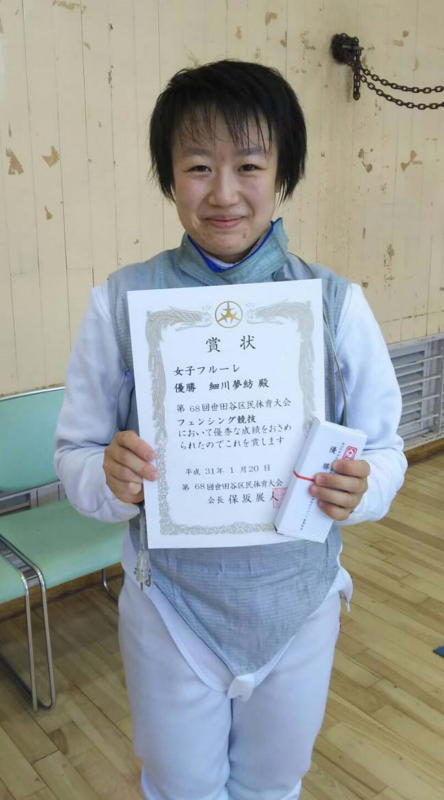 賞状
女子フルーレ
優勝 細川夢紡 殿
第68回世田谷区民体育大会
フェンシング競技
において優秀な成績をおさめ
られたのでこれを賞します
平成31年1月20日
第68回世田谷区民体育大会
会長 保坂展人
優勝